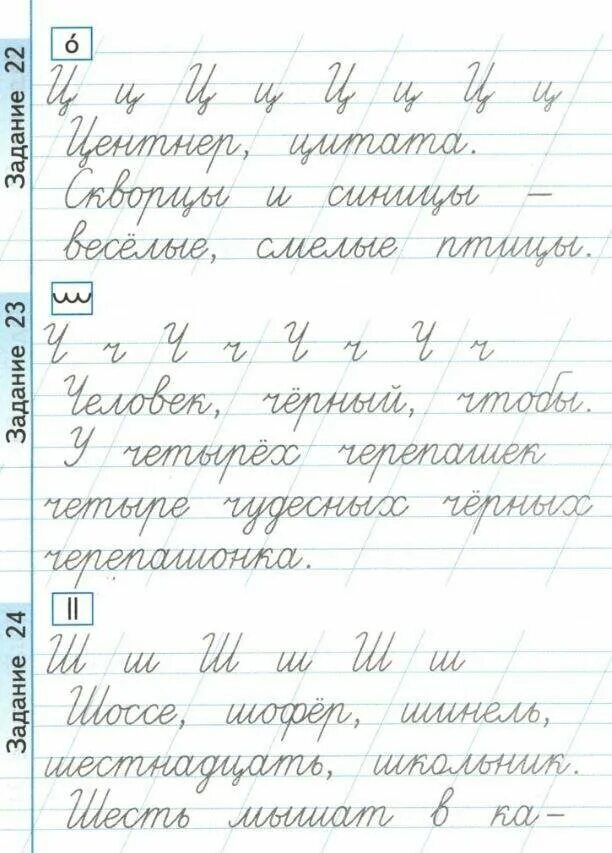 Задание 22
о́
Ц ц Ц ц Ц ц Ц ц
Центнер, цитата.
Скворцы и синицы –
весёлые, смелые птицы.
Задание 23
Ч ч Ч ч Ч ч Ч ч
Человек, чёрный, чтобы.
У четырёх черепашек
четыре чудесных чёрных
черепашонка.
Задание 24
Ш ш Ш ш Ш ш
Шоссе, шофёр, шинель,
шестнадцать, школьник.
Шесть мышат в ка–